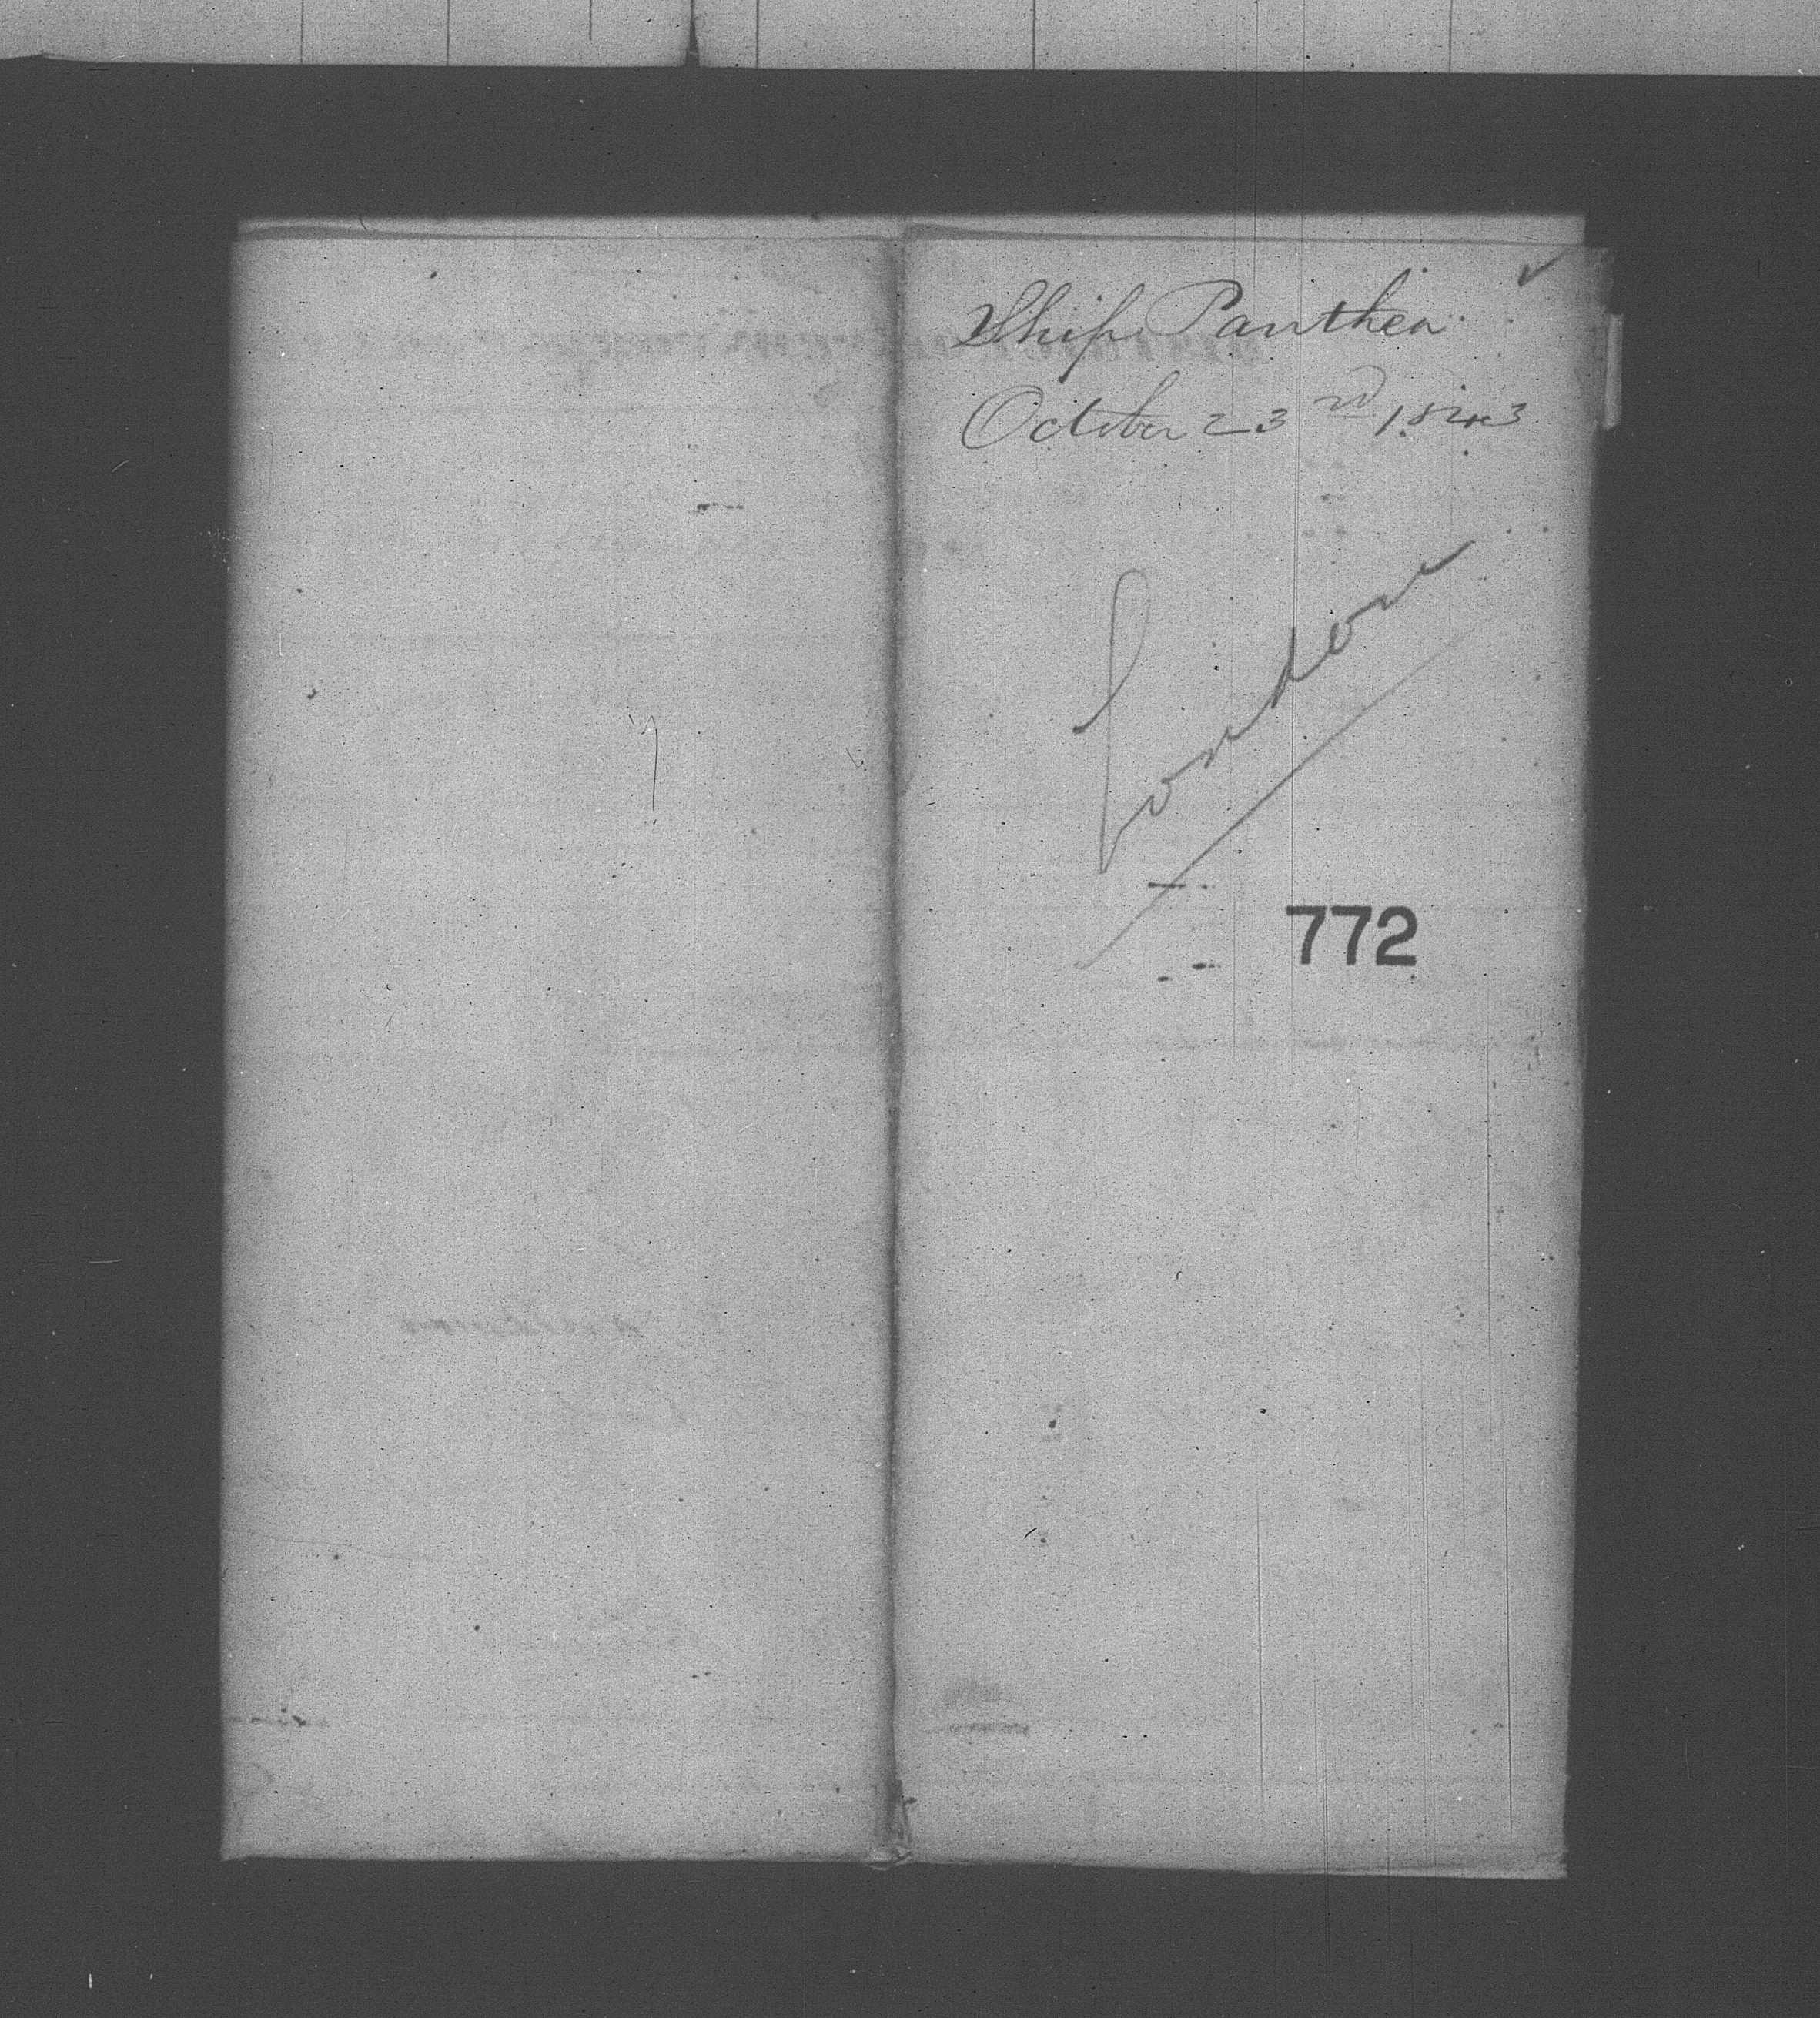 Ship Panthea
October 23rd 1843
London
772